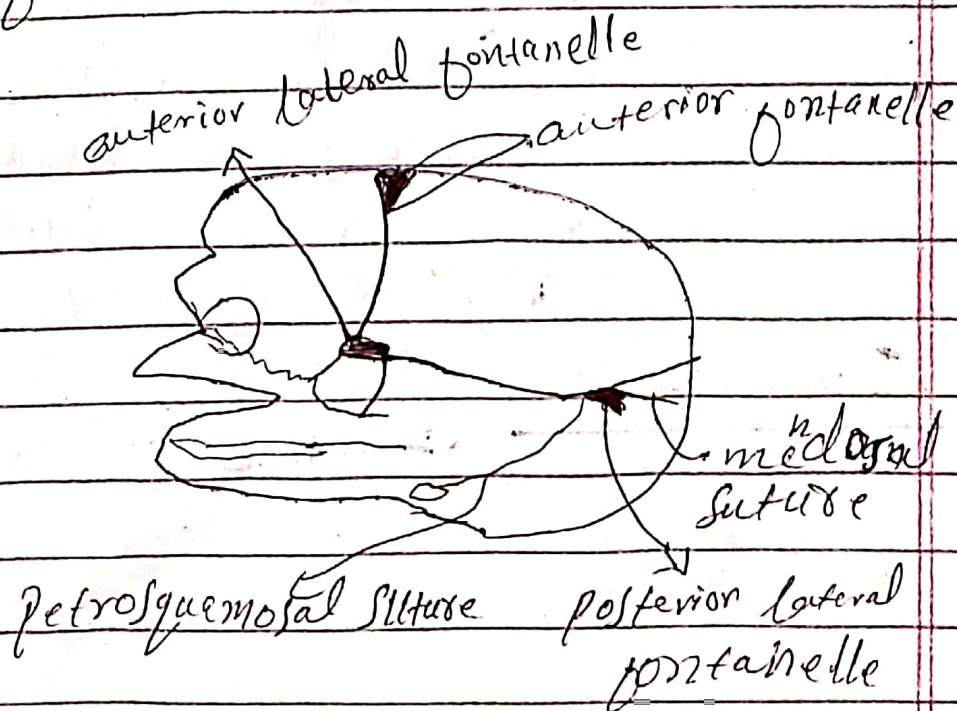 anterior lateral fontanelle
anterior fontanelle
suture
Petrosquamosal suture
posterior lateral
fontainelle